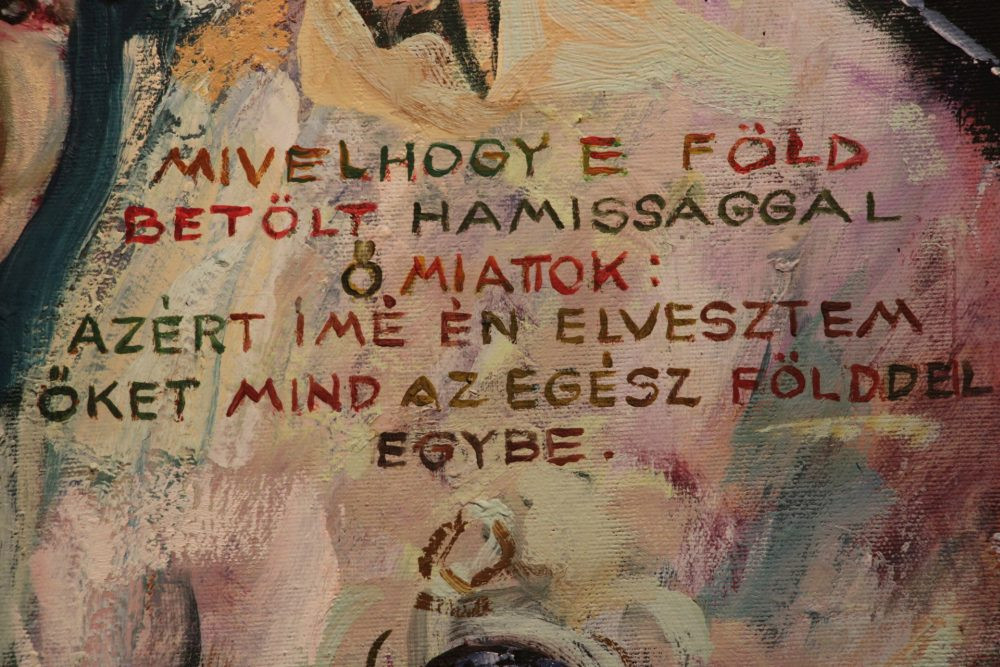 MIVELHOGY E FÖLD
BETÖLT HAMISSÁGGAL
Ő MIATTOK:
AZÉRT ÍMÉ ÉN ELVESZTEM
ŐKET MIND AZ EGÉSZ FÖLDDEL
EGYBE.